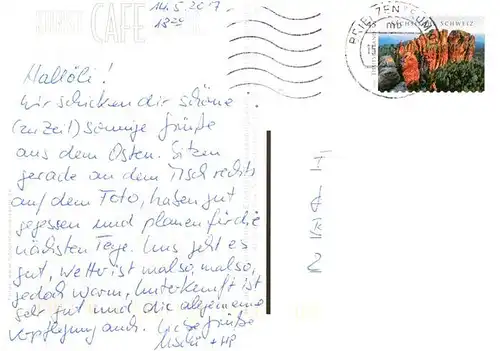 CAFE
14.5.2017
18 00
ZENTRUM
BRIEF
SCHWEIZ
15
Hallöli!
Wir schicken dir schöne
(zu Zeit) sonnige Grüße
aus dem Osten. Sitzen
gerade an dem Tisch rechts
auf dem Foto, haben gut
gegessen und planen für die
nächsten Tage. Uns geht es
gut, Wetter ist mal so, mal so,
jedoch warm, Unterkunft ist
sehr gut und die allgemeine
Verpflegung auch. Liebe Grüße
+ HP